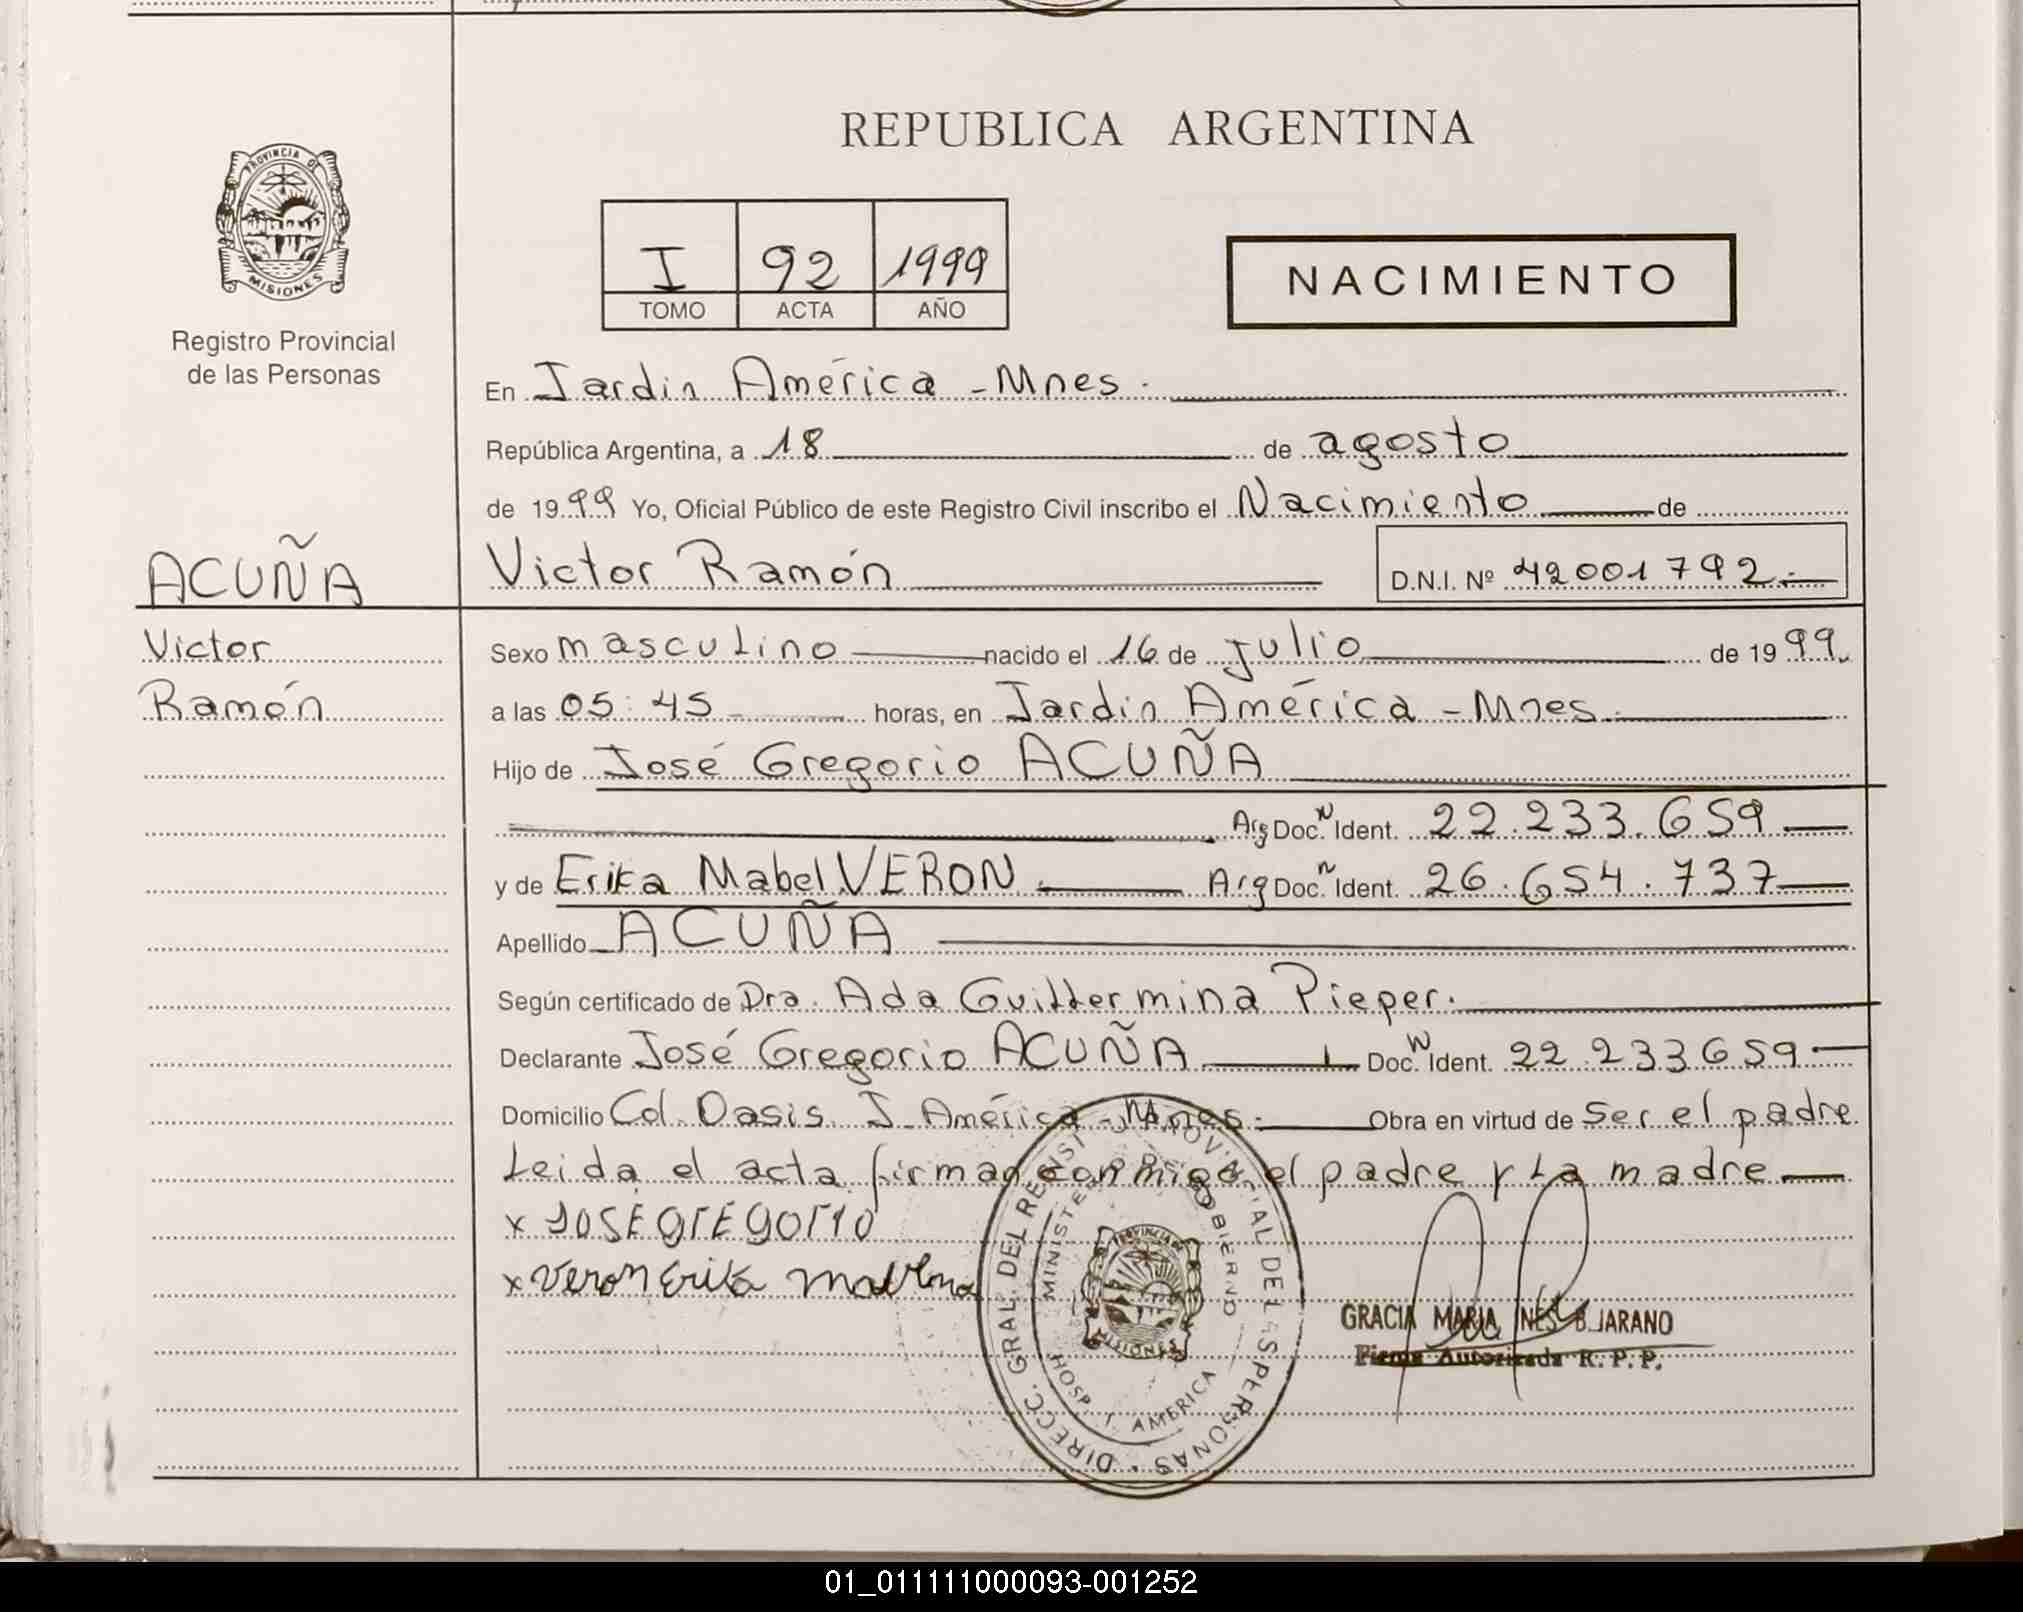 REPUBLICA ARGENTINA
PROVINCIA DE
MISIONES
Registro Provincial
de las Personas
I 92 1999
TOMO ACTA AÑO
NACIMIENTO
En Jardin América - Mnes.
República Argentina, a 18 de agosto
de 1999 Yo, Oficial Público de este Registro Civil inscribo el Nacimiento de
ACUÑA
Victor Ramón D.N.I. Nº 42001792.-
Victor
Ramón
Sexo masculino nacido el 16 de Julio de 1999
a las 05:45 horas, en Jardin América - Mnes.
Hijo de José Gregorio ACUÑA
Arg Doc. N Ident. 22.233.659
y de Erika Mabel VERON. Arg Doc. n Ident. 26.654.737
Apellido ACUÑA
Según certificado de Dra. Ada Guillermina Pieper.
Declarante José Gregorio ACUÑA Doc. N Ident. 22.233659
Domicilio Col. Oasis J. América - Mnes. Obra en virtud de ser el padre
Leida el acta firman conmigo, el padre y la madre
x JOSE GrEGOrIO
x Veron Erika
DIRECC. GRAL. DEL REG. PROVINCIAL DE LAS PERSONAS
MINISTERIO DE GOBIERNO
HOSP. J. AMERICA
PROVINCIA DE
MISIONES
GRACIA MARIA INES BEJARANO
Firma Autorizada R. P. P.
01_011111000093-001252